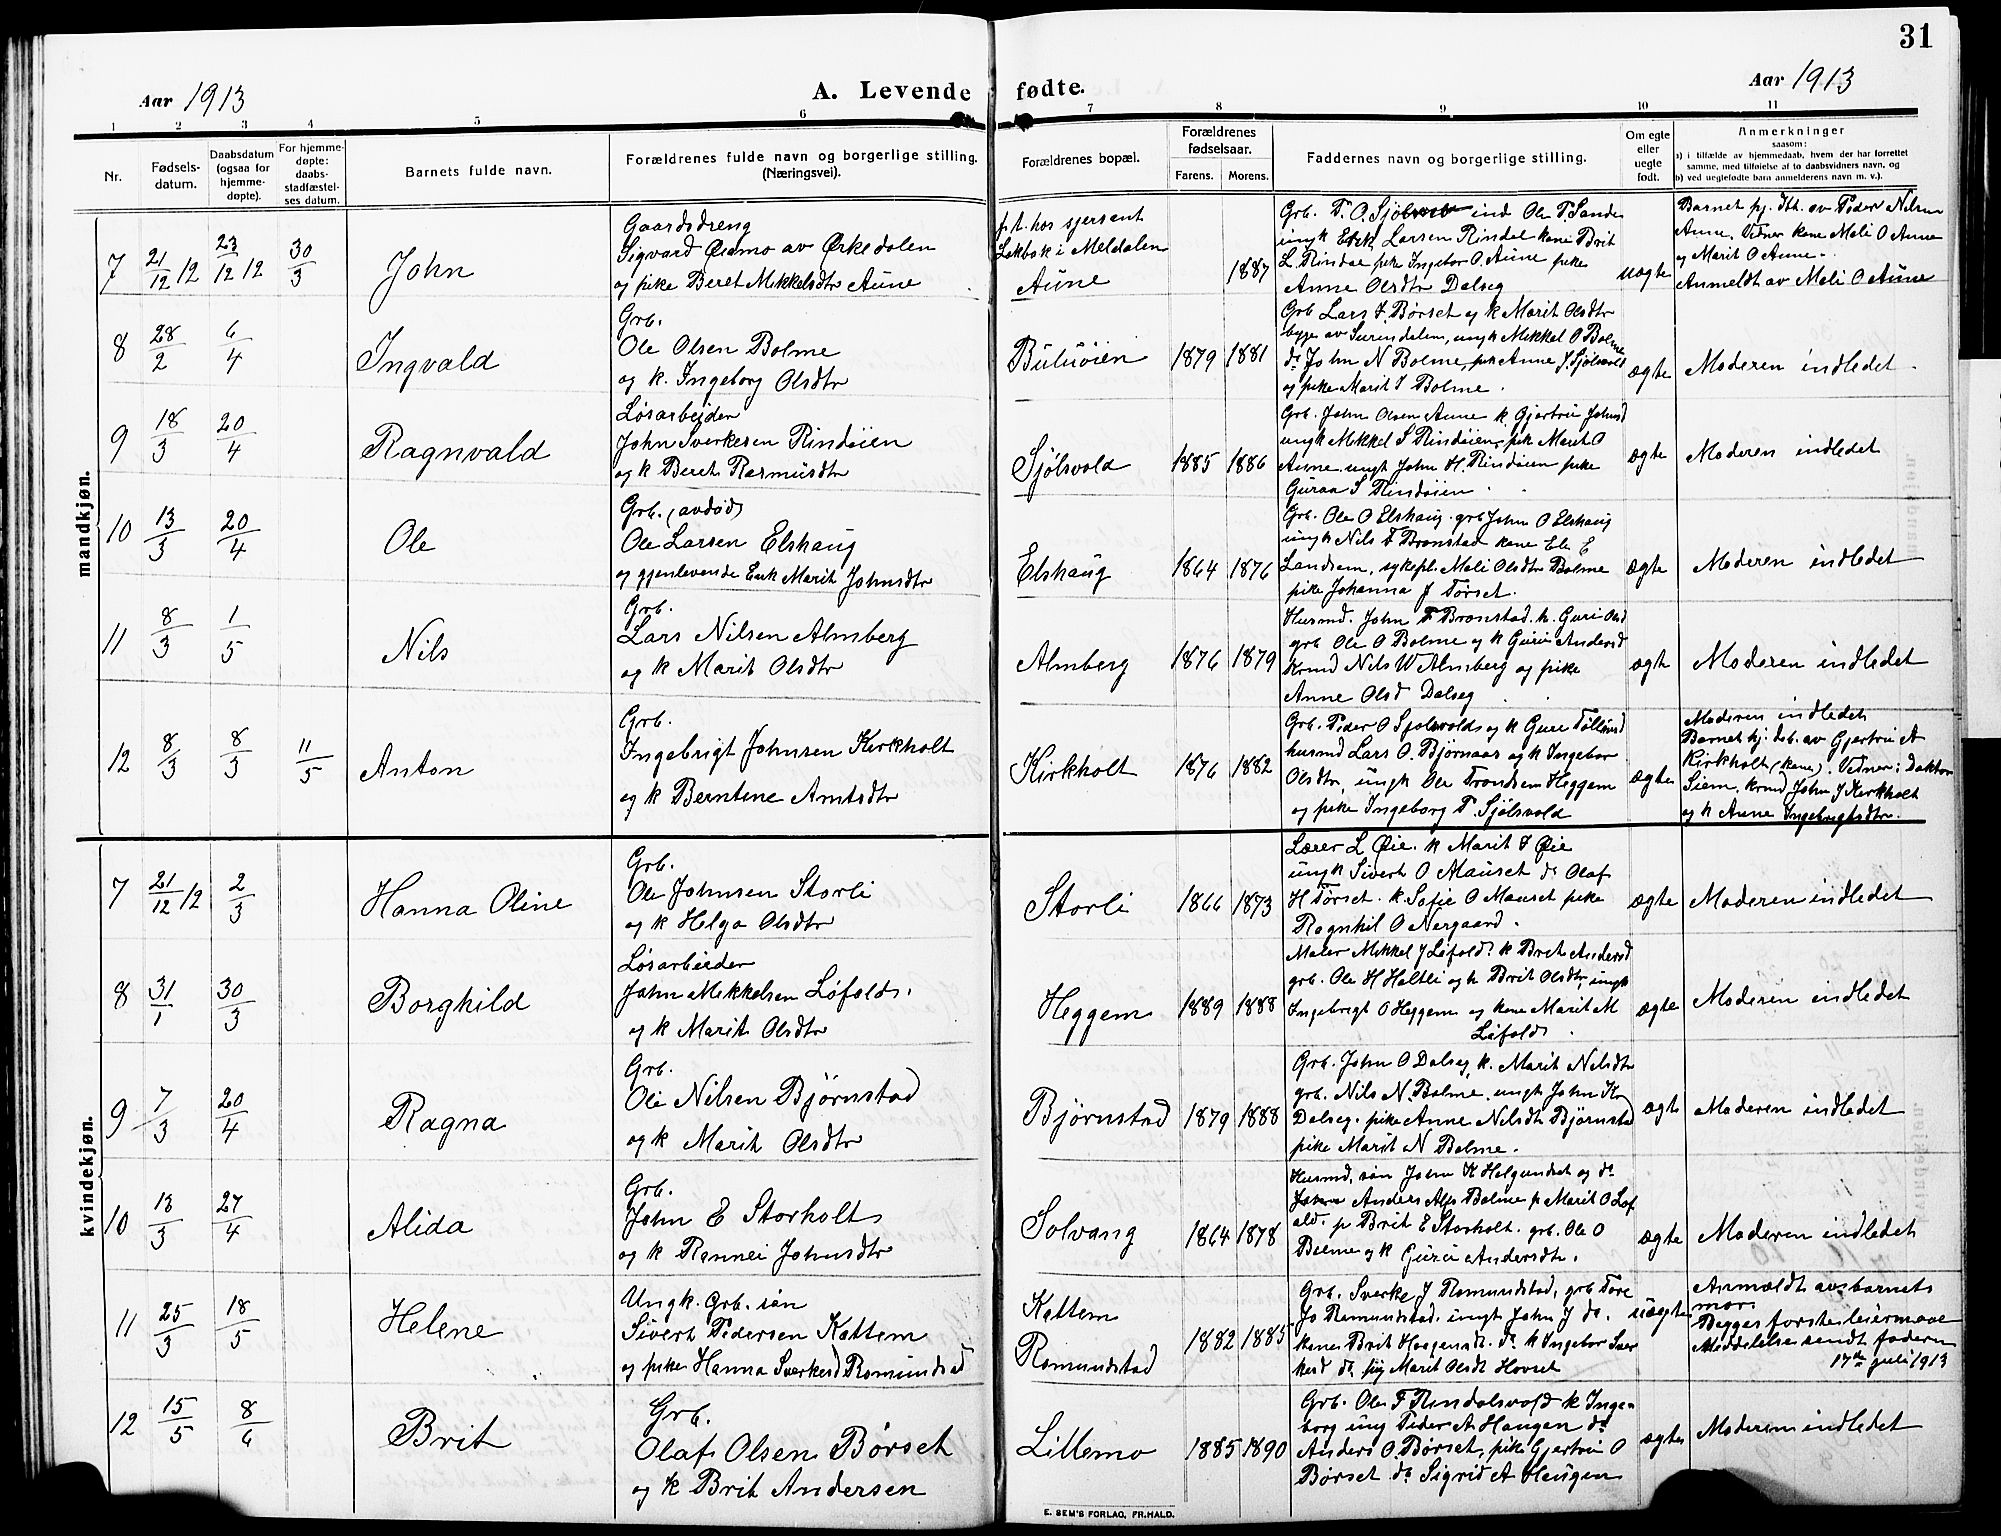 31
Aar 1913
A. Levende fødte.
Aar 1913
1 2 3 4 5 6 7 8 9 10 11
Nr.
Fødsels-
datum.
Daabsdatum
(ogsaa for
hjemme-
døpte).
For hjemme-
døpte:
daabs-
stadfæstel-
ses datum.
Barnets fulde navn.
Forældrenes fulde navn og borgerlige stilling.
(Næringsvei).
Forældrenes bopæl.
Forældrenes
fødselsaar.
Farens. Morens.
Faddernes navn og borgerlige stilling.
Om egte
eller
uegte
født.
Anmerkninger
saasom:
a) i tilfælde av hjemmedaab, hvem der har forrettet
samme, med tilføielse af to daabsvidners navn, og
b) ved uegtefødte barn anmelderens navn m. v.).
mandkjøn.
7
21/12 12
23/12 12
30/3
John
Gaardsdreng
Sigvard Øiamo av Ørkedalen
og pike Beret Mikkelsdtr Aune
p.t. hos sjersent
Løkbak i Meldalen
Aune
1887
Grb. T. O. Sjölsvold ind Ole T. Sande
ungk Erik Larsen Rindal kone Brit
L Rindal pike Ingebor O. Aune pike
Anne Olsdtr Dalseg
uægte
Barnet hj. dbt. av Peder Nilsen
Aune, Vitner kone Mali O Aune
og Marit O Aune.
Anmeldt av Mali O Aune
8
28/2
6/4
Ingvald
Grb.
Ole Olsen Bolme
og k. Ingeborg Olsdtr
Buluøien
1879 1881
Grb Lars J. Børset og k Marit Olsdtr
begge av Surendalen, ungk Mikkel O Bolme
do John N Bolme, pik Anne J. Sjølsvold
og pike Marit J Bolme.
ægte
Moderen indledet.
9
18/3
20/4
Ragnvald
Løsarbeider
John Sverkesen Rindøien
og k Beret Rasmusdtr
Sjølsvold
1885 1886
Grb. John Olsen Aune k. Gjertru Johnsd
ungk Mikkel S Rindøien, pik Marit O
Aune. ungk John H. Rindøien pike
Guraa S Rindøien.
ægte
Moderen indledet
10
13/3
20/4
Ole
Grb. (avdød)
Ole Larsen Elshaug
og gjenlevende Enk Marit Johnsdtr
Elshaug
1864 1876
Grb. Ole O Elshaug. grb John O Elshaug
ungk Nils T Bronstad kone Ele E
Landsem, sykepl. Mali Olsdtr Bolme
pike Johanna J Tørset.
ægte
Moderen indledet
11
8/3
1/5
Nils
Grb.
Lars Nilsen Almberg
og k Marit Olsdtr
Almberg
1876 1879
Husmd. John T Bronstad. k. Guri Olsd
grb Ole O Bolme og k Guru Andersd
Krmd Nils W Almberg og pike
Anne Olsd Dalseg
ægte
Moderen indledet
12
8/3
8/3
11/5
Anton
Grb.
Ingebrigt Johnsen Kirkholt
og k Berntine Arntsdtr
Kirkholt
1876 1882
Grb. Peder O Sjølsvold og k Gure Tøllefsd
husmd Lars O. Bjørnaas og k Ingebor
Olsdtr, ungk Ole Trondsen Heggem
og pike Ingeborg T. Sjølsvold
ægte
Moderen indledet
Barnet hj. dbt. av Gjertru A
Kirkholt (kone). Vitner: Doktor
Siem, Krmd John J Kirkholt
og k Anne Ingebrigtsdtr.
kvindekjøn.
7
21/12 12
2/3
Hanna Oline
Grb.
Ole Johnsen Storli
og k Helga Olsdtr
Storli
1866 1873
Lærer L Øie. k Marit J Øie
ungk Sivert O Mauset do Olaf
H Tørset. k Sofie O Mauset pike
Ragnhil O Nergaard.
ægte
Moderen indledet
8
31/1
30/3
Borghild
Løsarbeider
John Mikkelsen Løfald.
og k Marit Olsdtr
Heggem
1889 1888
Maler Mikkel J Løfald. k Brit Andersd
grb. Ole H Holtli og k Brit Olsdtr, ungk
Ingebrigt O Heggem og kone Marit M
Løfald.
ægte
Moderen indledet
9
7/3
20/4
Ragna
Grb.
Ole Nilsen Bjørnstad
og k Marit Olsdtr
Bjørnstad
1879 1888
Grb. John O Dalseg, k. Marit Nilsdtr
grb. Nils N. Bolme, ungk John K
Dalseg. pike Anne Nilsdt Bjørnstad
pike Marit N Bolme.
ægte
Moderen indledet
10
13/3
27/4
Alida
Grb.
John E Storholt
og k Rannei Johnsdtr
Solvang
1864 1878
Husmd, søn John K Helgundset og do
Anders Alfs Bolme p Marit O Løf
ald. p Brit E Storholt. grb. Ole O
Bolme og k Guru Andersdtr.
ægte
Moderen indledet
11
25/3
18/5
Helene
Ungk. Grb. søn
Sivert Pedersen Kattem
og pike Hanna Sverkesd Romundstad
Kattem
Romundstad
1882 1885
Grb. Sverke J Romundstad, grb Tore
Jo Romundstad. ungk John J do.
kone Brit Haagensdt. do k Ingebor Sver
kesd do pig Marit Olsdt Hovset
uægte
Anmeldt av barnets
mor.
Begges første leiermaal
Meddelelse sendt faderen
17de juli 1913
12
15/5
8/6
Brit
Grb.
Olaf Olsen Børset
og k Brit Andersen
Lillemo
1885 1890
Grb. Ole F Rindalsvold k Inge-
borg ung Peder A Haugen do
Anders O. Børset, pike Gjertru O
Børset do Sigrid A Haugen
ægte
Moderen indledet
E. SEM'S FORLAG, FR.HALD.